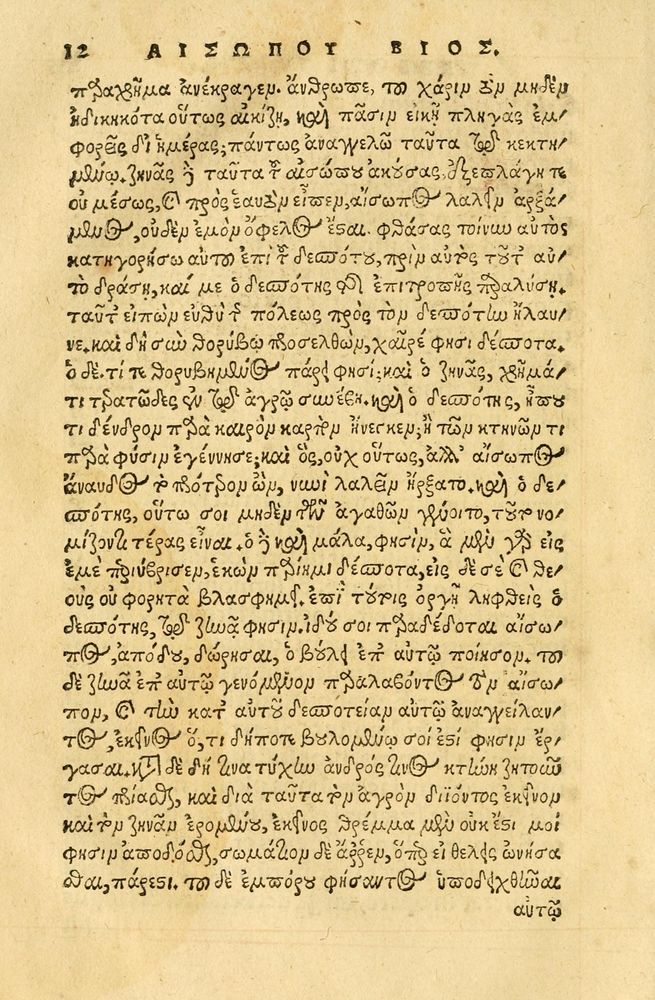 12 ΑΙΣΩΠΟΥ ΒΙΟΣ.
παραχρῆμα ἀνέκραγεν. ἄνθρωπε, τοῦ χάριν τὸν μηδὲν
ἠδικηκότα οὕτως αἰκίζῃ, καὶ πᾶσιν εἰκῆ πληγὰς ἐμ-
φορεῖς δι' ἡμέρας; πάντως ἀναγγελῶ ταῦτα τῷ κεκτη-
μένῳ. ζηνᾶς δὲ ταῦτα τοῦ αἰσώπου ἀκούσας, ἐξεπλάγη τε
οὐ μέσως, καὶ πρὸς ἑαυτὸν εἶπεν, αἴσωπος λαλεῖν ἀρξά-
μενος, οὐδὲν ἐμὸν ὄφελος ἔσται. φθάσας τοίνυν αὐτὸς
κατηγορήσω αὐτοῦ ἐπὶ τοῦ δεσπότου, πρὶν αὐτὸς τοῦτ' αὐ-
τὸ δράσῃ, καί με ὁ δεσπότης τῆς ἐπιτροπῆς παραλύσῃ.
ταῦτ' εἰπὼν εὐθὺ τῆς πόλεως πρὸς τὸν δεσπότην ἤλαυ-
νε. καὶ δὴ σὺν θορύβῳ προσελθὼν, χαῖρέ φησι δέσποτα.
ὁ δὲ. τί τεθορυβημένος πάρει φησί; καὶ ὁ ζηνᾶς, χρῆμά
τι τερατῶδες ἐν τῷ ἀγρῷ συνέβη. καὶ ὁ δεσπότης, ἤπου
τι δένδρον παρὰ καιρὸν καρπὸν ἤνεγκεν; ἢ τῶν κτηνῶν τι
παρὰ φύσιν ἐγέννησε; καὶ ὃς, οὐχ οὕτως, ἀλλ' αἴσωπος
ἄναυδος τὸ πρότερον ὢν, νυνὶ λαλεῖν ἤρξατο. καὶ ὁ δε-
σπότης, οὕτω σοι μηδὲν τῶν ἀγαθῶν γένοιτο, τοῦτο νο-
μίζοντι τέρας εἶναι. ὁ δὲ καὶ μάλα, φησὶν, ἃ μὲν γὰρ εἰς
ἐμὲ περιύβρισεν, ἑκὼν παρίημι δέσποτα, εἰς δὲ σὲ καὶ θε-
οὺς οὐ φορητὰ βλασφημεῖ. ἐπὶ τούτοις ὀργῇ ληφθεὶς ὁ
δεσπότης, τῷ ζηνᾷ φησιν. ἰδού σοι παραδέδοται αἴσω-
πος, ἀπόδου, δώρησαι, ὃ βούλει ἐπ' αὐτῷ ποίησον. τοῦ
δὲ ζηνᾶ ἐπ' αὐτῷ γενόμενον παραλαβόντος τὸν αἴσω-
πον, καὶ τὴν κατ' αὐτοῦ δεσποτείαν αὐτῷ ἀναγγείλαν-
τος, ἐκεῖνος ὅ, τι δήποτε βουλομένῳ σοί ἐστί φησιν ἔρ-
γασαι. κατὰ δὲ δή τινα τύχην ἀνδρός τινος κτήνη ζητοῦν
τος πρίασθαι, καὶ διὰ ταῦτα τὸν ἀγρὸν διϊόντος ἐκεῖνον
καὶ τὸν ζηνᾶν ἐρομένου, ἐκεῖνος θρέμμα μὲν οὐκ ἔστι μοί
φησιν ἀποδόσθαι, σωμάτιον δὲ ἄῤῥεν, ὅπερ εἰ θέλεις ὠνήσα
σθαι, πάρεστι. τοῦ δὲ ἐμπόρου φήσαντος ὑποδειχθῆναι
αὐτῷ